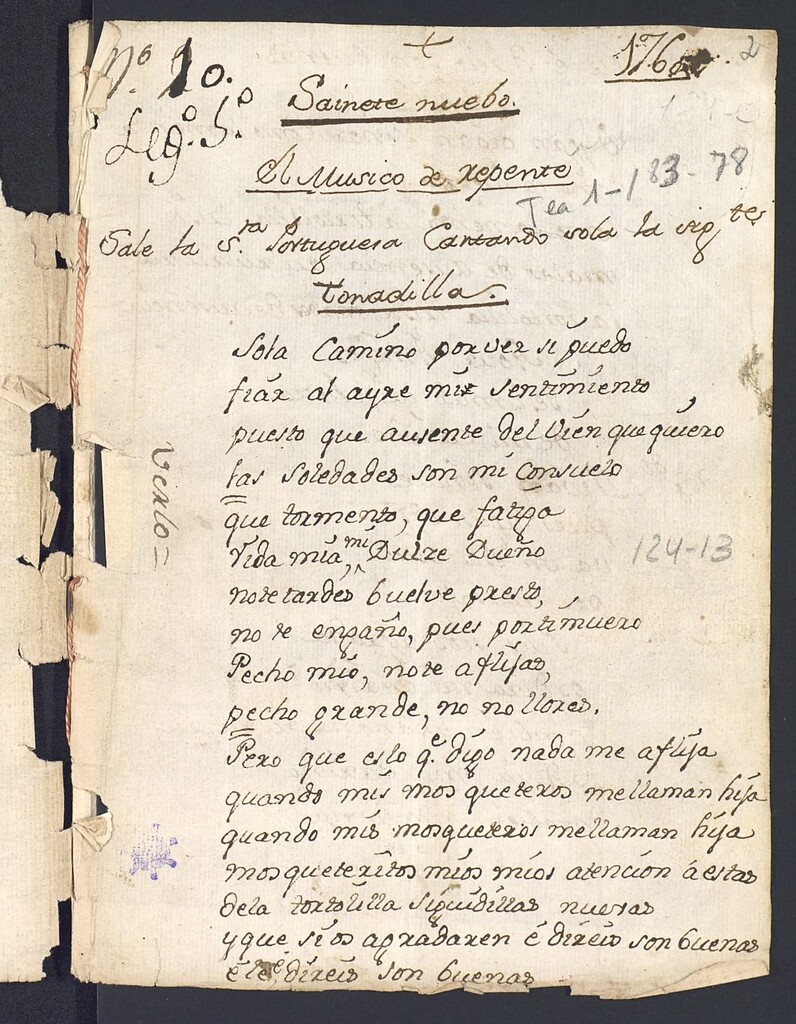 Nº 10.
+
176
2
Legº. 5º
Sainete nuebo.
El Musico de repente
Tea 1-183-78
Sale la S.ra Portuguesa Cantando sola la sigtes
tonadilla.
Sola Camino por ver si puedo
fiar al ayre mis sentimiento
puesto que ausente del vien que quiero
las soledades son mi Consuelo
que tormento, que fatiga
vida mia, mi Dulze Dueño
no te tardes buelve presto,
no te engaño, pues por ti muero
Pecho mio, no te aflijas,
pecho grande, no no llores.
Pero que es lo q.e digo nada me aflija
quando mis mosqueteros me llaman hija
quando mis mosqueteros me llaman hija
mosqueteritos mios mios atencion á estas
de la tortolilla siguidillas nuevas
y que si os agradaren é direis son buenas
é direis son buenas
124-13